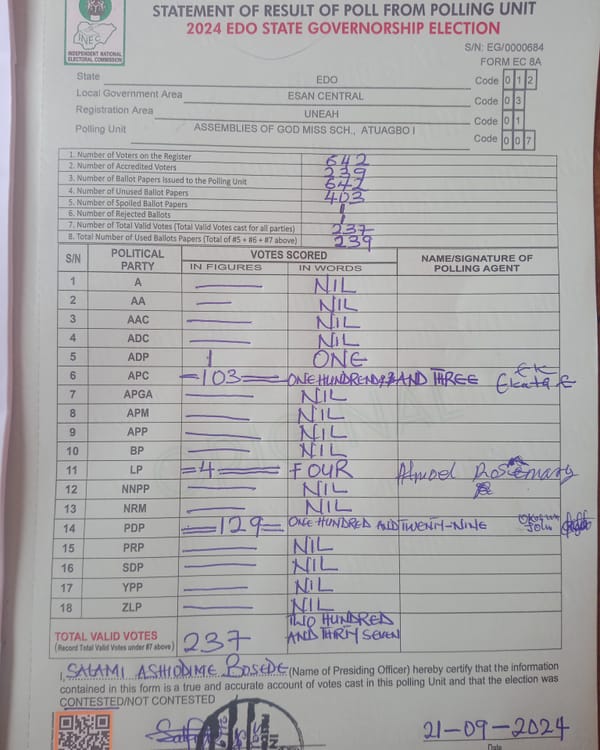 STATEMENT OF RESULT OF POLL FROM POLLING UNIT
2024 EDO STATE GOVERNORSHIP ELECTION
INEC
INDEPENDENT NATIONAL
ELECTORAL COMMISSION
S/N: EG/0000684
FORM EC 8A
State EDO Code 0 1 2
Local Government Area ESAN CENTRAL Code 0 3
Registration Area UNEAH Code 0 1
Polling Unit ASSEMBLIES OF GOD MISS SCH., ATUAGBO I Code 0 0 7
1. Number of Voters on the Register 642
2. Number of Accredited Voters 239
3. Number of Ballot Papers Issued to the Polling Unit 642
4. Number of Unused Ballot Papers 403
5. Number of Spoiled Ballot Papers 1
6. Number of Rejected Ballots 1
7. Number of Total Valid Votes (Total Valid Votes cast for all parties) 237
8. Total Number of Used Ballots Papers (Total of #5 + #6 + #7 above) 239
S/N POLITICAL PARTY VOTES SCORED NAME/SIGNATURE OF POLLING AGENT
IN FIGURES IN WORDS
1 A — NIL
2 AA — NIL
3 AAC — NIL
4 ADC — NIL
5 ADP 1 ONE
6 APC =103= ONE HUNDRED AND THREE
7 APGA — NIL
8 APM — NIL
9 APP — NIL
10 BP — NIL
11 LP =4= FOUR Rosemary
12 NNPP — NIL
13 NRM — NIL
14 PDP =129= ONE HUNDRED AND TWENTY-NINE John
15 PRP — NIL
16 SDP — NIL
17 YPP — NIL
18 ZLP — NIL
TOTAL VALID VOTES 237 TWO HUNDRED AND THIRTY SEVEN
(Record Total Valid Votes under #7 above)
I, SALAMI ASHIODIME BOSEDE (Name of Presiding Officer) hereby certify that the information
contained in this form is a true and accurate account of votes cast in this polling Unit and that the election was
CONTESTED/NOT CONTESTED
21-09-2024
Date